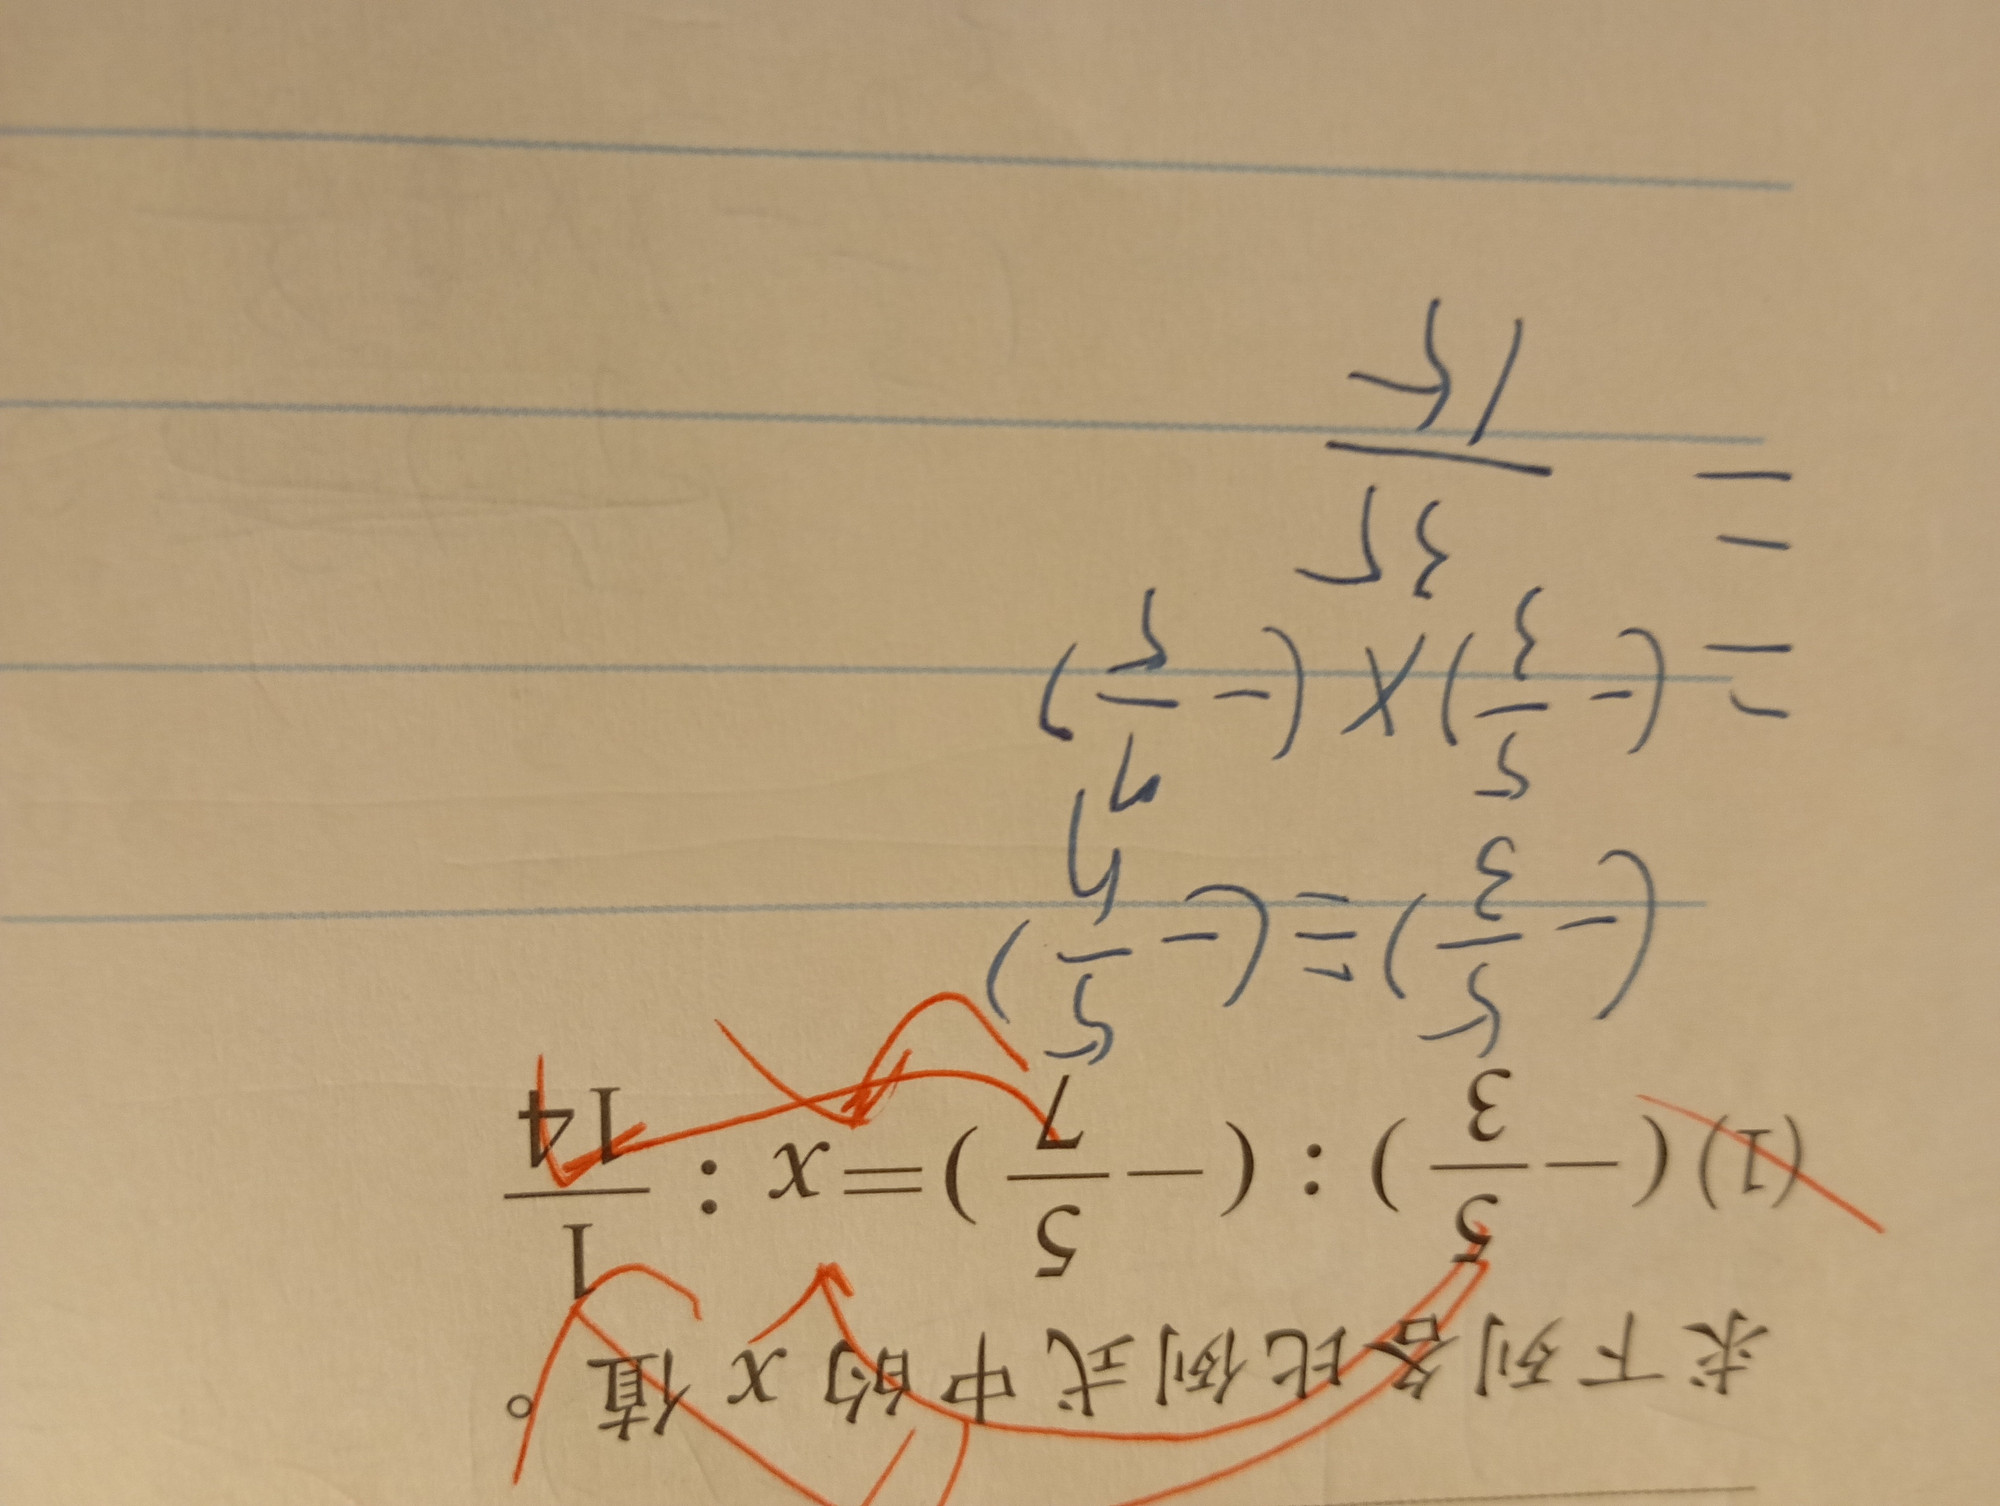 求下列各比例式中的 x 值。
(1) (−5/3) : (−5/7) = x : 1/14
(−5/3) ÷ (−5/7)
= (−5/3) × (−7/5)
= 35/15